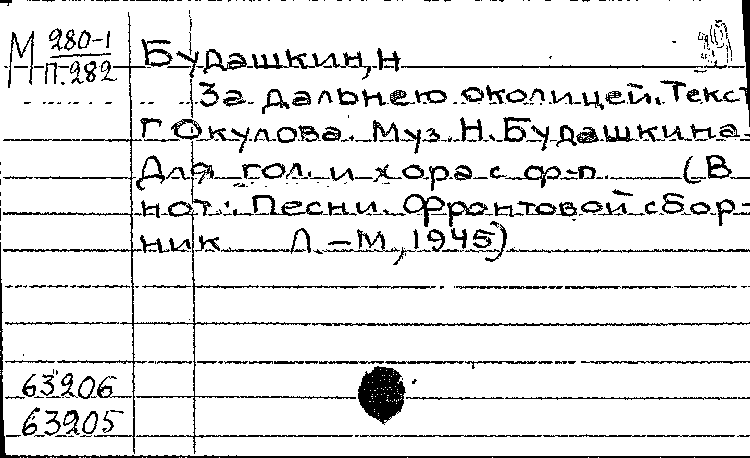 М 280-1
П.282
Будашкин, Н
За дальнею околицей. Текст
Г. Окулова. Муз. Н. Будашкина.
Для гол. и хора с ф-п. (В
нот.: Песни. Фронтовой сбор-
ник Л.-М., 1945)
63206
63205